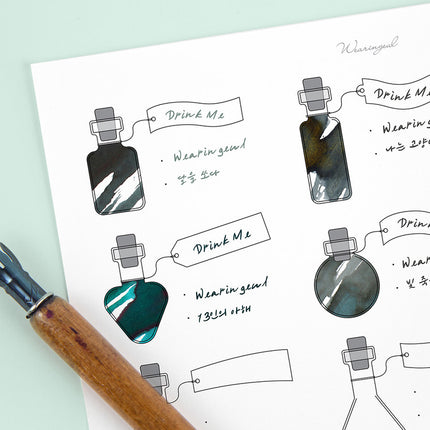 Wearingeul
Drink Me
• Wearingeul
• 달을 쏘다
Drink Me
• Wearing
• 나는 고양이
Drink Me
• Wearingeul
• 13인의 아해
Drin
• Wear